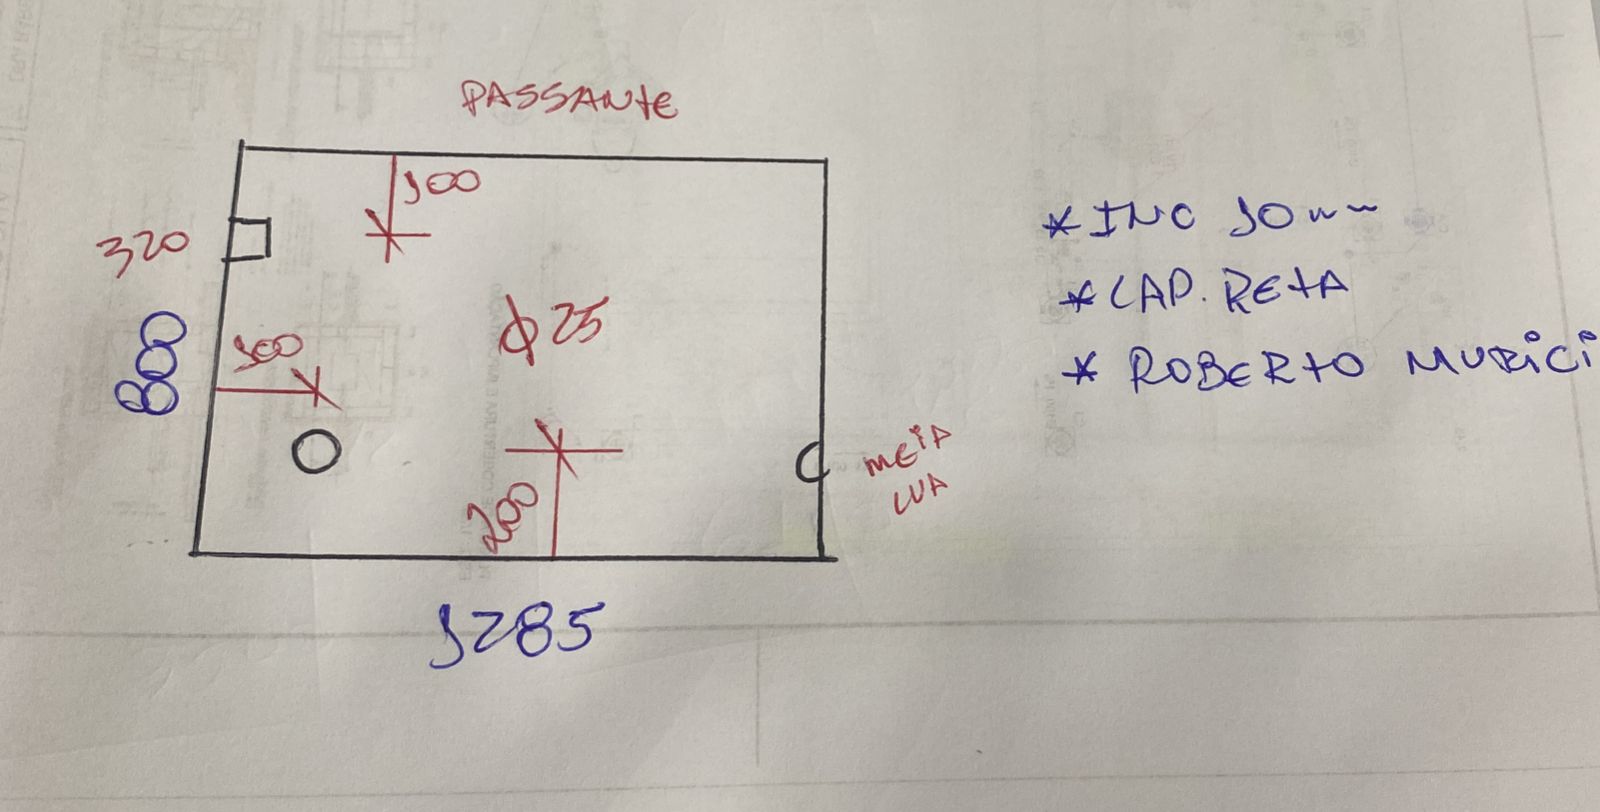 PASSANTE
100
320
φ 25
800
100
200
MEIA
LUA
1285
* INC 10 mm
* LAP. RETA
* ROBERTO MURICI